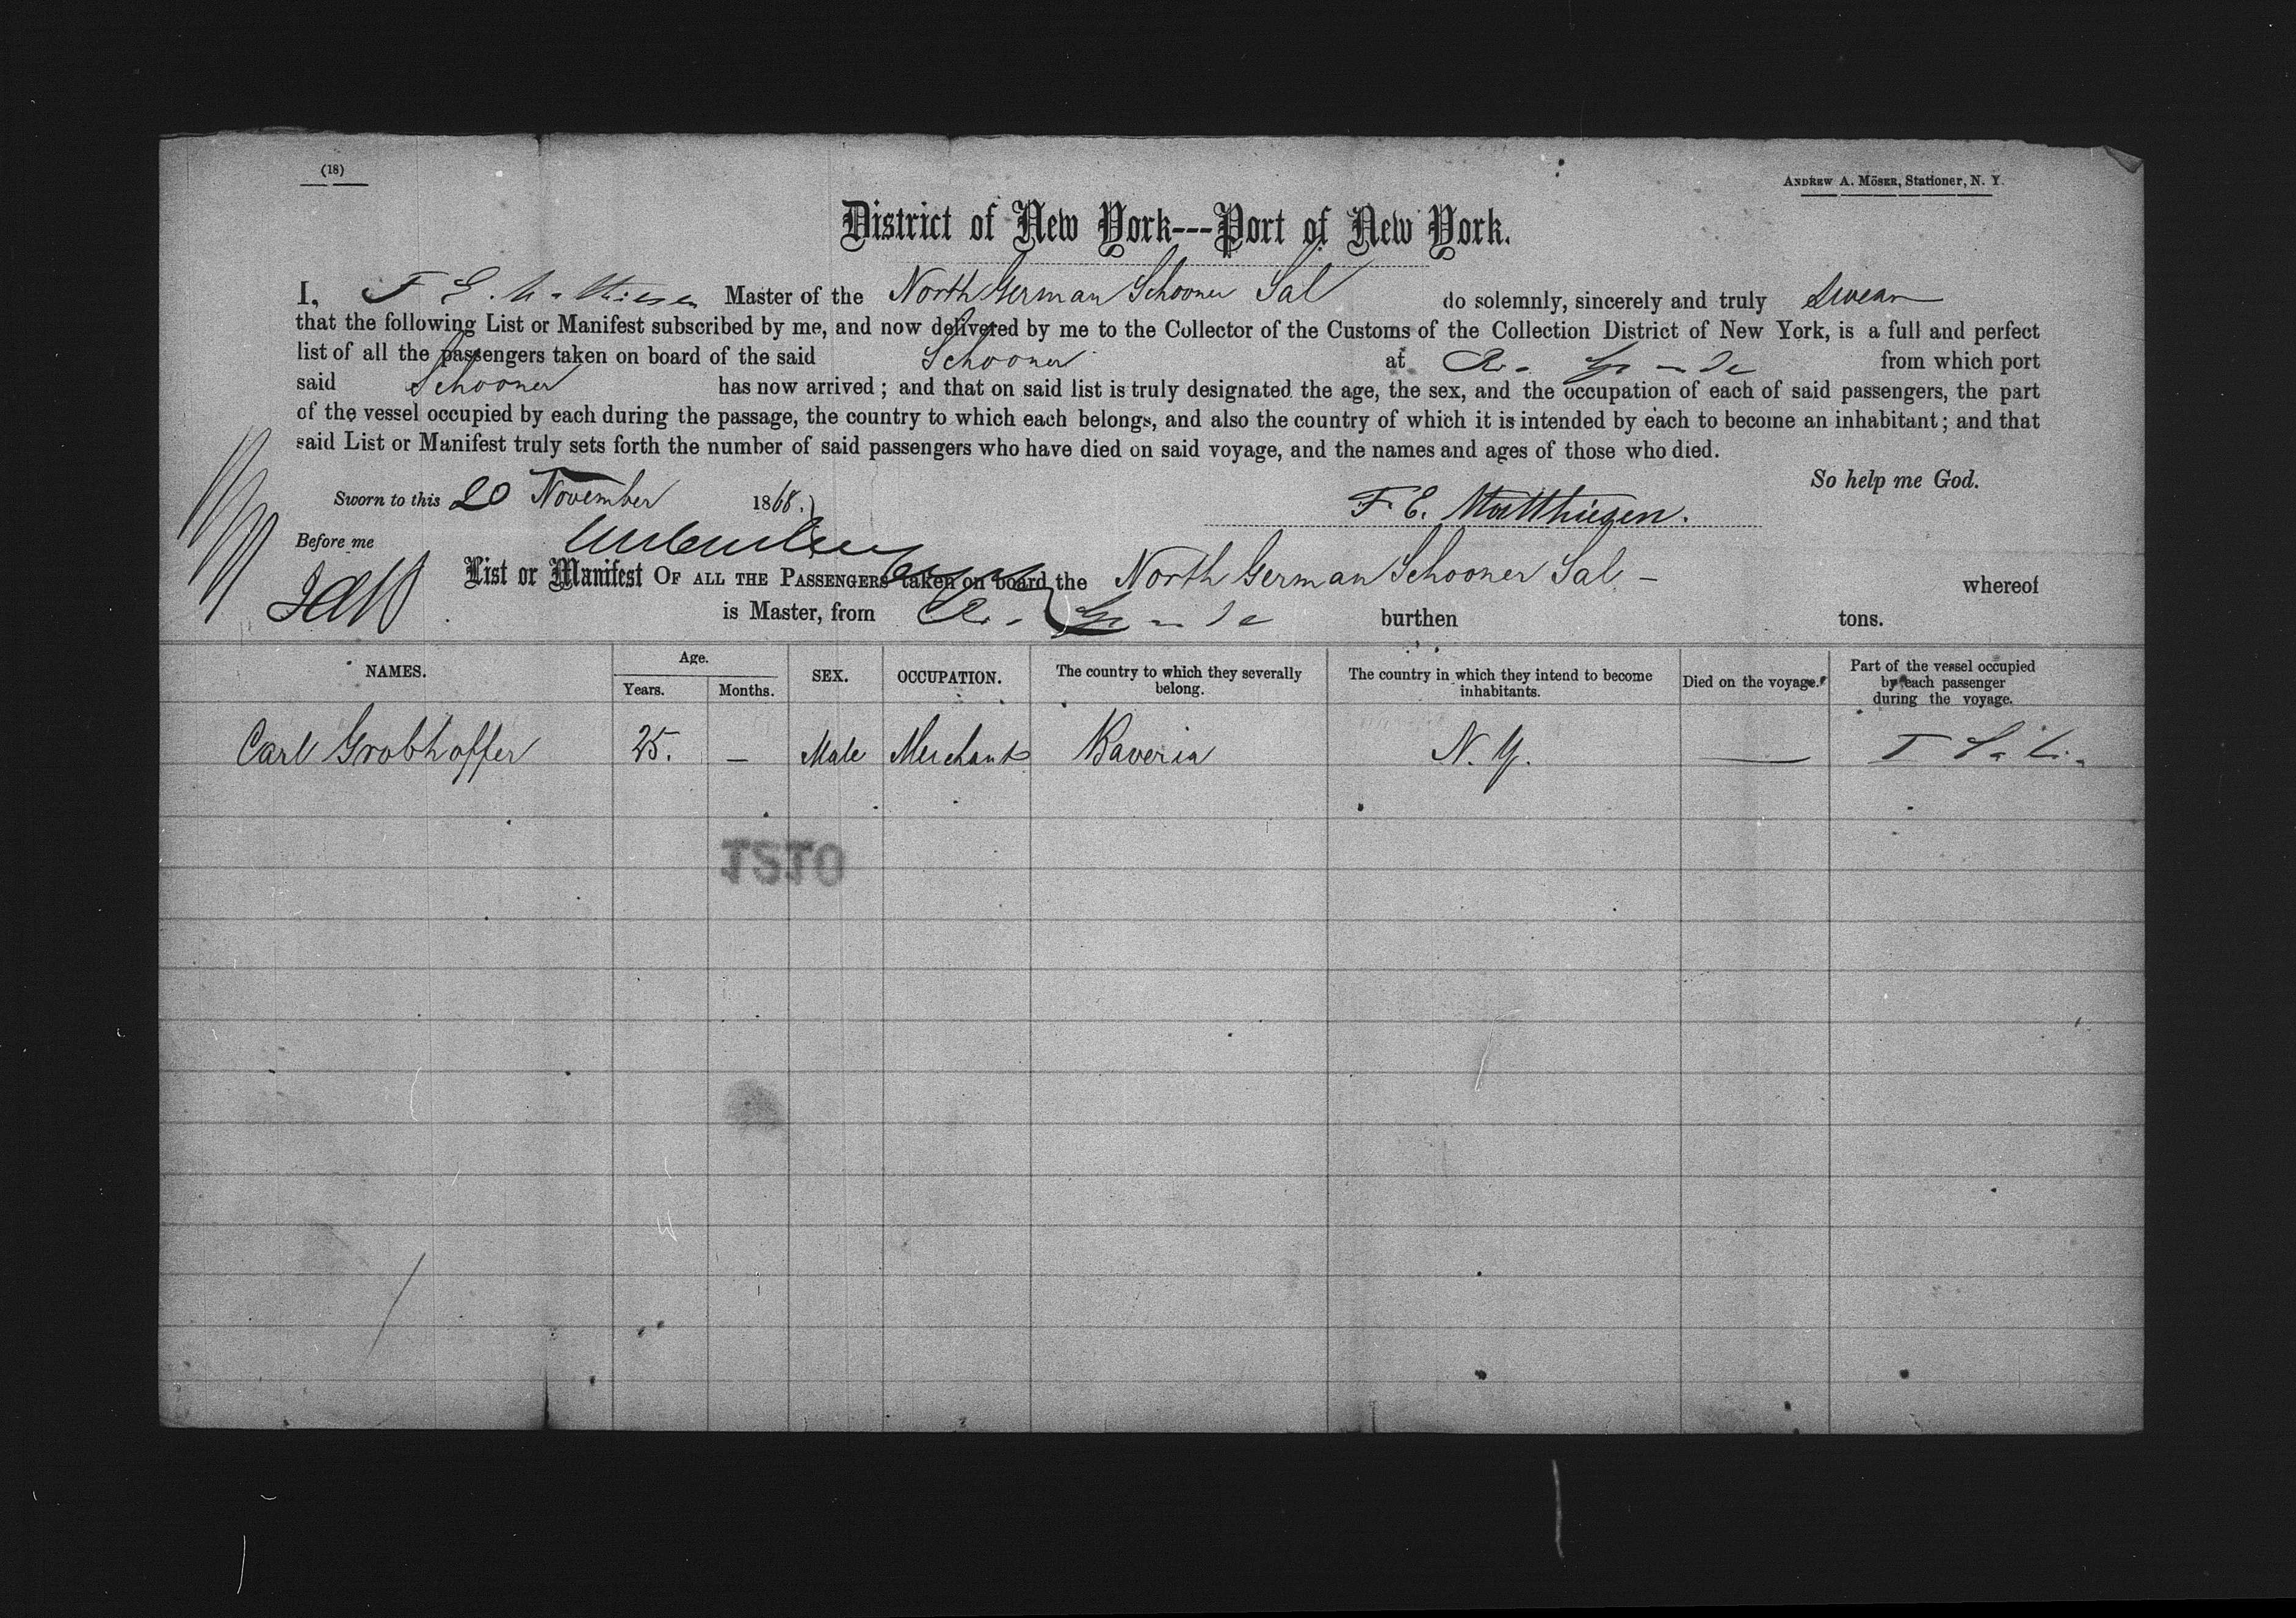 (18)
ANDREW A. MÖSER, Stationer, N. Y.
District of New York---Port of New York.
I, F E. Matthiesen Master of the North German Schooner Sal do solemnly, sincerely and truly Swear
that the following List or Manifest subscribed by me, and now delivered by me to the Collector of the Customs of the Collection District of New York, is a full and perfect
list of all the passengers taken on board of the said Schooner at Rio Grande from which port
said Schooner has now arrived; and that on said list is truly designated the age, the sex, and the occupation of each of said passengers, the part
of the vessel occupied by each during the passage, the country to which each belongs, and also the country of which it is intended by each to become an inhabitant; and that
said List or Manifest truly sets forth the number of said passengers who have died on said voyage, and the names and ages of those who died.
So help me God.
Sworn to this 20 November 1868.
F. E. Matthiesen.
Before me
List or Manifest OF ALL THE PASSENGERS taken on board the North German Schooner Sal - whereof
is Master, from Rio Grande burthen tons.
NAMES. Age. Years. Months. SEX. OCCUPATION. The country to which they severally belong. The country in which they intend to become inhabitants. Died on the voyage. Part of the vessel occupied by each passenger during the voyage.
Carl Grobhoffer 25. - Male Merchant Baveria N. Y. —
1210